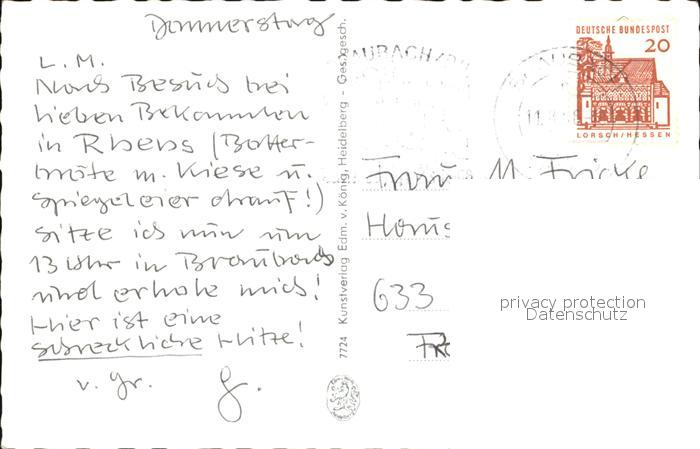 Donnerstag
L. M.
Nach Besuch bei
lieben Bekannten
in Rhens (Butter-
bröte m. Kiese u.
Spiegeleier drauf!)
sitze ich nun um
13 Uhr in Braubach
und erhole mich!
Hier ist eine
schreckliche Hitze!
v. Gr. G.
7724 Kunstverlag Edm. v. König, Heidelberg - Ges. gesch.
DEUTSCHE BUNDESPOST
20
LORSCH/HESSEN
Frau M. Fricke
Haus
633
privacy protection
Datenschutz